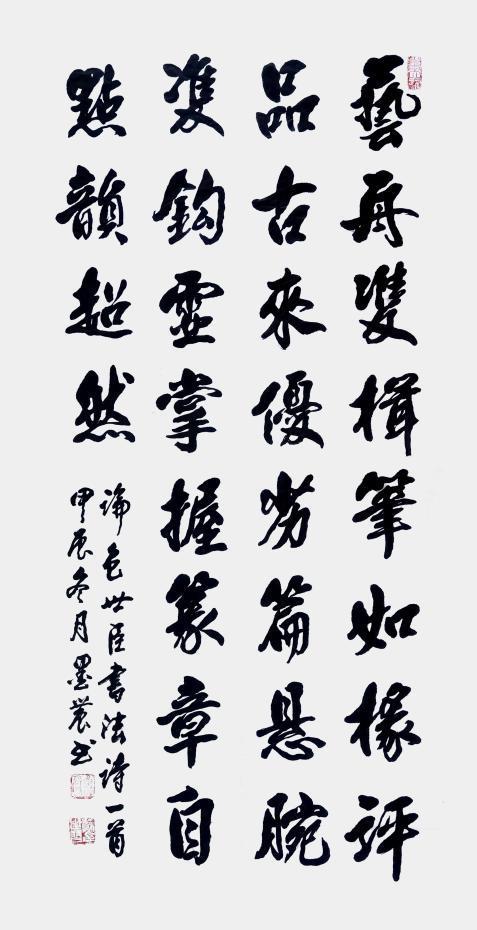 藝舟雙楫筆如椽評
品古來優劣篇悬腕
雙鈎靈掌握篆章自
點韻超然
論包世臣書法詩一首
甲辰冬月墨農书